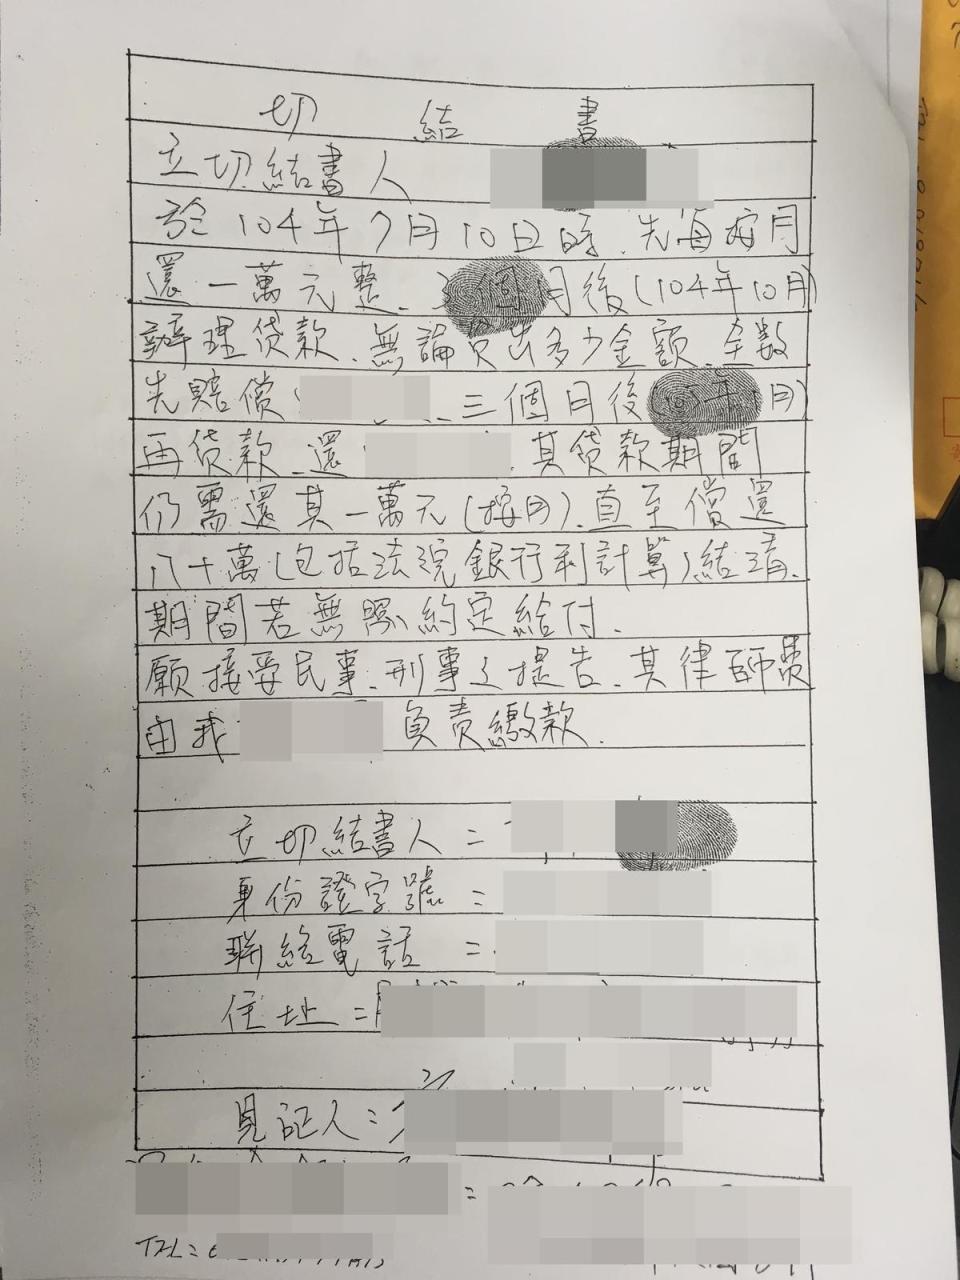 切結書
立切結書人
於104年7月10日時.先每按月
還一萬元整.三個月後(104年10月)
辦理贷款.無論贷出多少金額.全数
先賠償 .三個月後(105年1月)
再贷款 還 .其贷款期間
仍需還其一萬元(按月).直至償還
八十萬(包括法院銀行利計算)結清.
期間若無照約定給付.
願接受民事.刑事之提告.其律師费
由我 負责繳款.
立切結書人=
身份證字號=
聯絡電話=
住址=
見証人=
TEL=